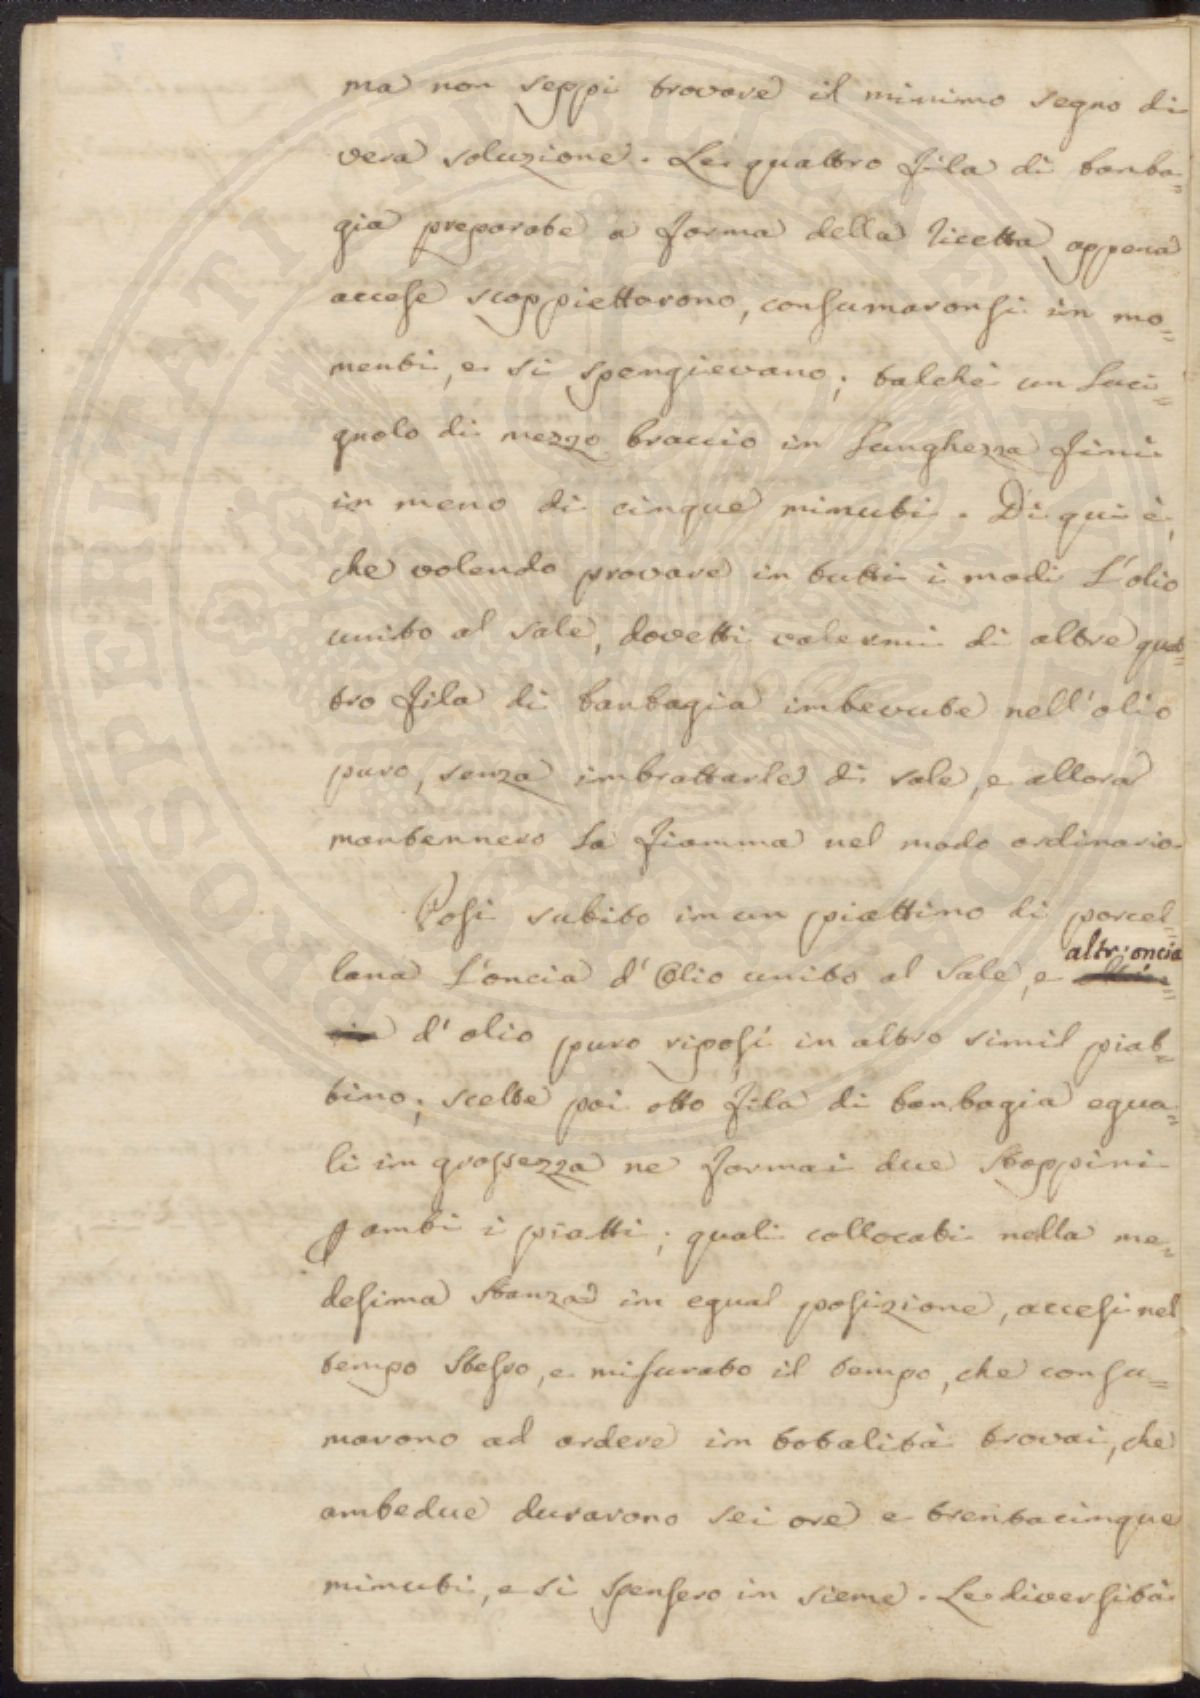 ma non seppi trovare il minimo segno di
vera soluzione. Le quattro fila di banba=
gia preparate a forma della ricetta appena
accese scoppiettorono, consumaronsi in mo=
menti, e si spengievano; talchè un Luci=
gnolo di mezzo braccio in Lunghezza finì
in meno di cinque minuti. Di qui è,
che volendo provare in tutti i modi L'olio
unito al sale, dovetti valermi di altre quat=
tro fila di banbagia imbevute nell'olio
puro, senza imbrattarle di sale, e allora
mantennero La fiamma nel modo ordinario.
Posi subito in un piattino di porcel=
lana L'oncia d'Olio unito al Sale, e altr'oncia
d'olio puro riposi in altro simil piat=
tino; scelte poi otto fila di banbagia egua=
li in grossezza ne formai due stoppini
p ambi i piatti; quali collocati nella me=
desima stanza in egual posizione, accesi nel
tempo stesso, e misurato il tempo, che consu=
marono ad ardere in totalità trovai, che
ambedue durarono sei ore e trentacinque
minuti, e si spensero in sieme. Le diversità
PROSPERITATI PUBLICAE AUGENDAE